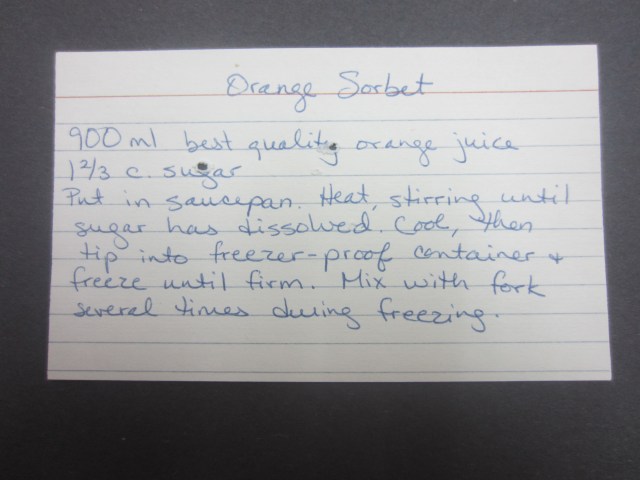 Orange Sorbet
900 ml best quality orange juice
1 2/3 c. sugar
Put in saucepan. Heat, stirring until
sugar has dissolved. Cool, then
tip into freezer-proof container +
freeze until firm. Mix with fork
several times during freezing.